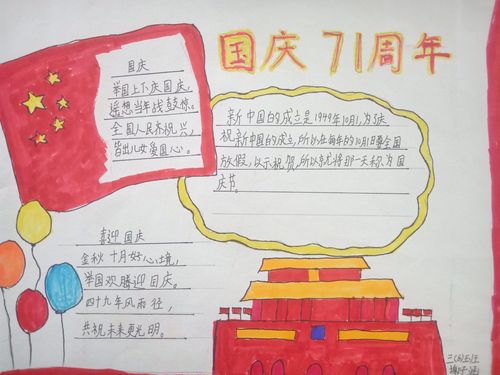 国庆71周年
国庆
举国上下庆国庆,
遥想当年战鼓惊。
全国人民齐祝兴,
皆出儿女爱国心。
新中国的成立是1949年10月1,为了庆
祝新中国的成立,所以在每年的10月1日要全国
放假,以示祝贺,所以就将那一天称为国
庆节。
喜迎国庆
金秋十月好心境,
举国欢腾迎国庆。
四十九年风雨径,
共祝未来更光明。